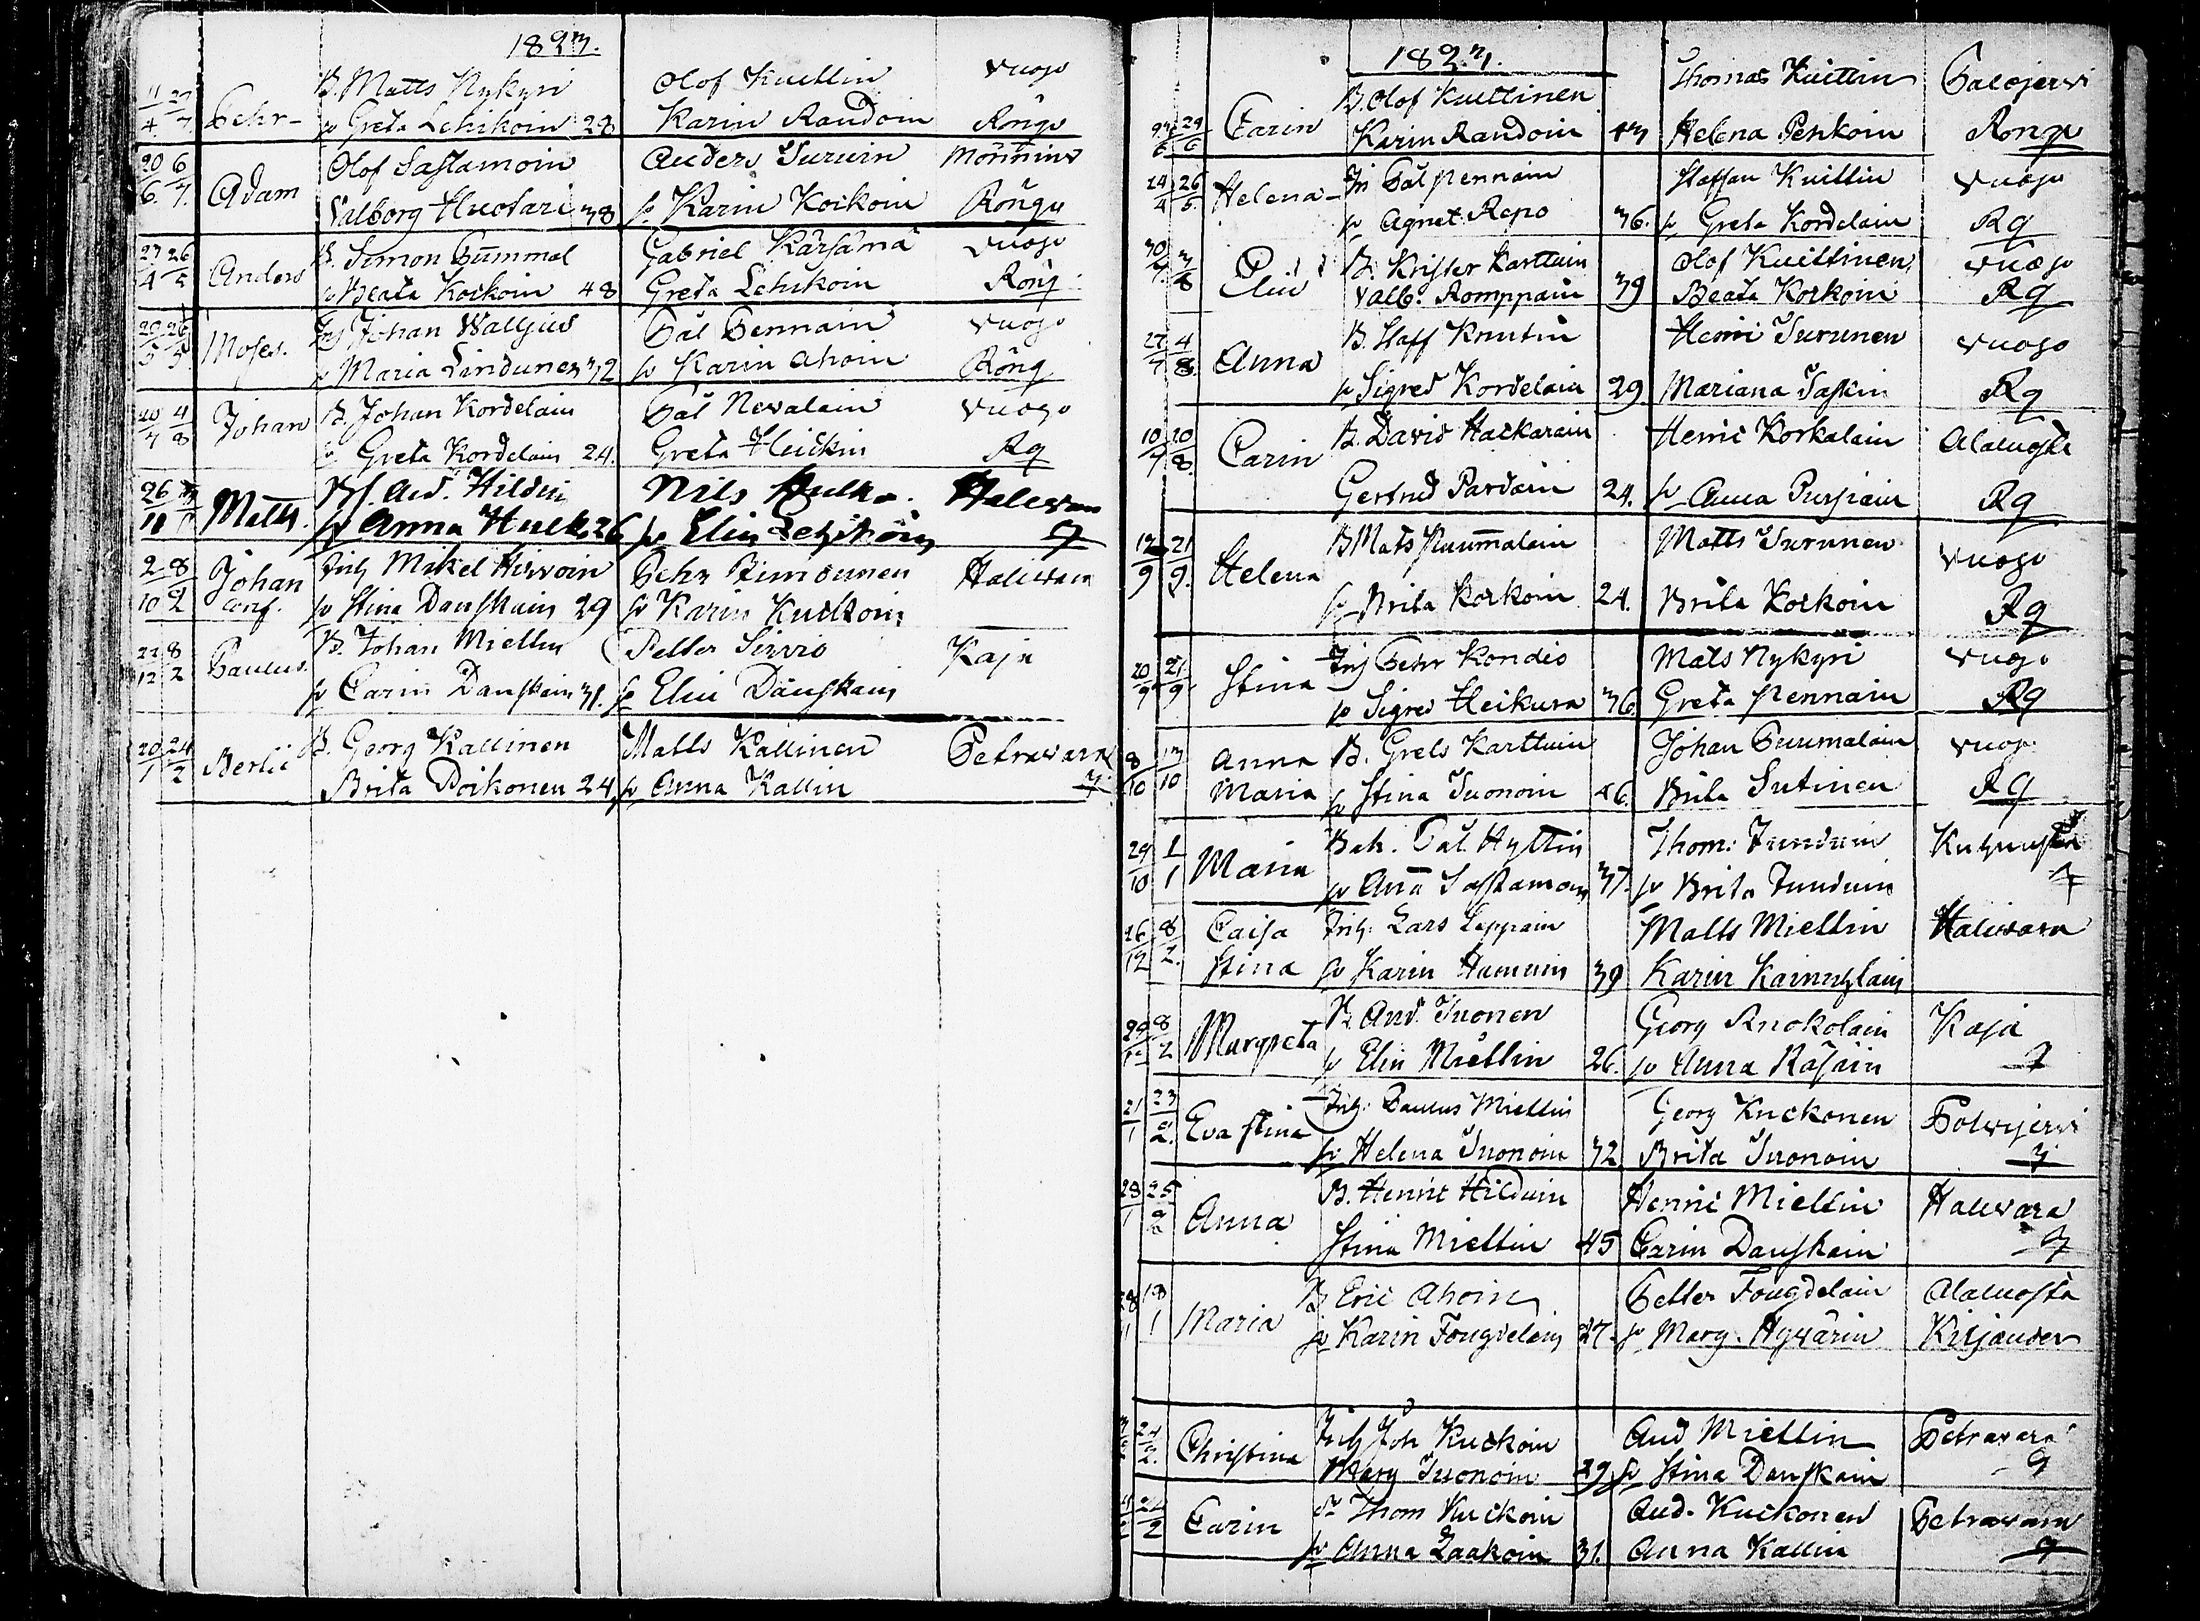 1823.
11/4 27/7 Pehr - B. Matts Nykyri Olof Kuittin Vuojo
h Greta Lehikoin 28 Karin Raudoin Röngö
20/6 6/7 Adam Olof Sastamoin Anders Turuin Mönnine
Valborg Huotari 38 h Karin Koikoin Röngö
27/4 26/5 Anders B. Simon Pummal Gabriel Kärsämä Vuojo
h Beata Korkoin 48 Greta Lehikoin Rönq
20/5 26/5 Moses. Inh Johan Walljus Pål Pennain Vuojo
h Maria Lindunen 32 h Karin Ahoin Rönq
20/7 4/8 Johan B. Johan Kordelain Pål Nevalain Vuojo
h Greta Kordelain 24. Greta Heickin Rq
26/11 Matts. And. Hilduin Nils Hulko. Halivara
h Anna Hulk. 26 h Elin Lehikoin
2/10 8/2 Johan Inh Mikel Hirvoin Pehr Timounen Halivara
conf. h Stina Danskain 29 h Karin Kuckoin
22/12 8/2 Paulus B. Johan Miettin Petter Sirvio Kaja
h Carin Danskain 31. h Elin Danskain
20/1 24/2 Bertil B. Georg Kallinen Matts Kallinen Petravara
Brita Poikonen 24, h Anna Kallin
1823.
27/6 29/6 Carin B. Olof Kuittinen Thomas Kuittin Palojervi
Karin Raudoin 43 Helena Penkoin Rönge
24/4 26/5 Helena - In Pål Pennain Staffan Kuittin Vuojo
h Agnet. Repo 36. h Greta Kordelain Rq
30/7 3/8 Elin B. Krister Karttuin Olof Kuittinen Vuojo
Valb. Romppain 39 Beata Korkoin Rq
27/7 4/8. Anna B. Staff Knutin Henric Turunen Vuojo
h Sigred Kordelain 29 Mariana Taskin Rq
10/7 10/8. Carin B. David Hackarain Henric Korkalain Alaluosta
Gertrud Pardain 24. h Anna Purpain Rq
12/9 21/9. Helena B Mats Puumalain Matts Turunen Vuojo
h Brita Korkoin 24. Brita Korkoin Rq
20/9 21/9. Stina Inh Pehr Kondio Mats Nykyri Vuojo
h Sigred Heikura 36. Greta Pennain Rq
8/10 13/10 Anna B. Grels Karttuin Johan Puumalain Vuoj
Maria h Stina Tuonoin 46. Brita Sutinen Rq
29/10 1/1 Maria Bak. Pål Hyttin Thom. Tunduin
h Ana Sastamoin 37. h Brita Tunduin
26/12 8/2. Caisa Inh. Lars Leppain Matts Miettin Halivara
Stina h Karin Hamuin 39 Karin Kainulain
29/12 8/2 Margreta B. And. Tuonen Georg Ruokolain Kaja
h Elin Miettin 26. h Anna Räsäin
21/1 23/2. Eva Stina Inh. Paulus Miettin Georg Kuckonen Polvijervi
h Helena Tuonoin 32 Brita Tuonoin
28/1 25/2 Anna B. Henric Hilduin Henric Miettin Halivara
Stina Miettin 45 Carin Danskain
Maria B Eric Ahoin Petter Fougdelain Alaluosta
h Karin Fougdelain 27. h Marg. Hyvärin Kiljander
24/2. Christina Inh Joh Kuckoin And Miettin Petravara
Marg Tuonoin 29 h Stina Danskain
24/2 Carin Thom Kuckoin And. Kuckonen Petravara
h Anna Laakoin 31. Anna Kallin